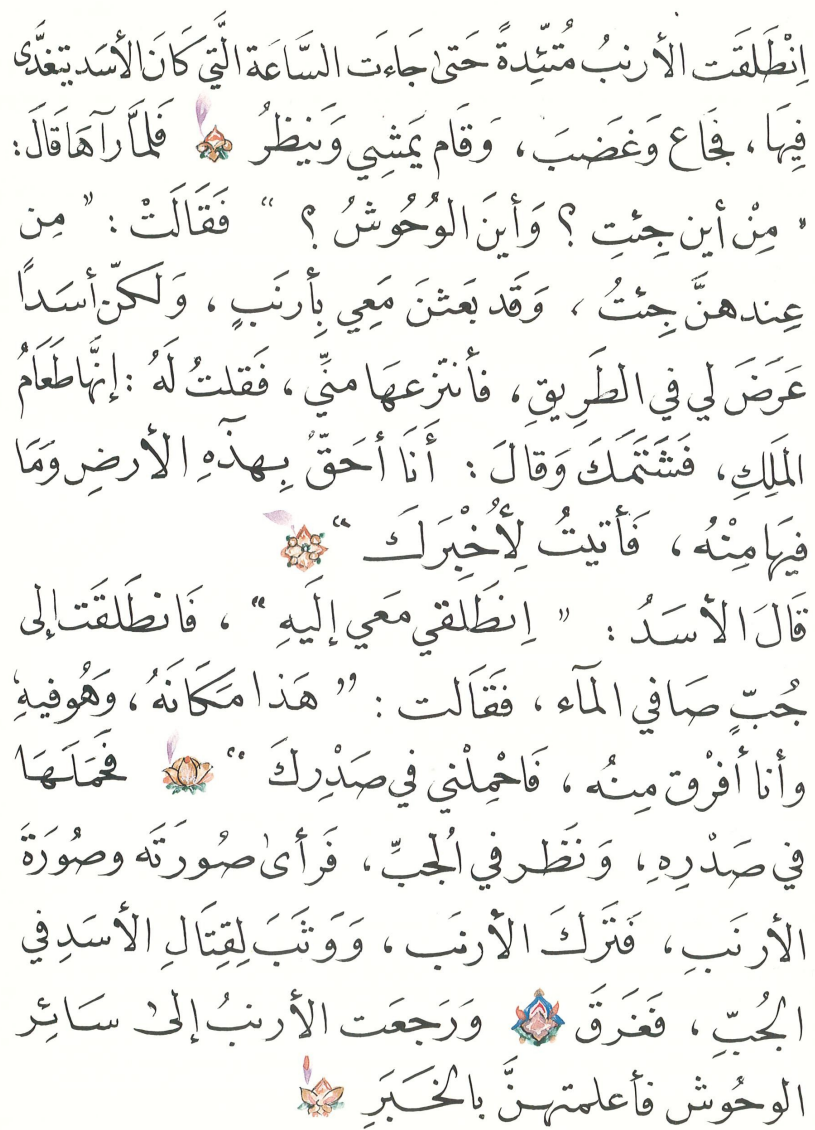 اِنْطَلَقَت الأرنبُ مُتَّئِدةً حَتىٰ جَاءَت السَّاعَة الَّتِي كَانَ الأسَد يَتغَدَّى
فِيهَا، فجَاع وَغَضبَ، وَقَام يَمشِي وَيَنظرُ فَلمَّا رآهَا قَالَ:
" مِنْ أين جِئتِ ؟ وَأينَ الوُحُوشُ ؟ " فَقَالَتْ : " مِن
عِندهنَّ جِئتُ ، وَقَد بَعثنَ مَعِي بِأرنَبٍ ، وَلَكنّ أسَداً
عَرَضَ لي في الطَرِيقِ، فأنتزعهَا منّي ، فَقلتُ لَهُ : إنَّها طَعَامُ
المَلِكِ، فَشَتَمَكَ وَقالَ : أَنَا أحَقّ بِهذِهِ الأرضِ وَمَا
فِيهَا مِنْهُ ، فَأتيتُ لِأُخْبِرَكَ "
قَالَ الأسَدُ : " اِنطَلقي مَعي إلَيهِ " ، فَانطلَقَت إلى
جُبٍّ صَافي المآء ، فقَالت : " هَذا مَكَانَهُ ، وَهُو فيهِ
وأنا أفرْق مِنُه ، فَاحْمِلْني في صَدْرِكَ " فَحَمَلَهَا
في صَدْرِهِ، وَنَظَر في الجبِّ، فَرأىٰ صُورَتَه وصُورَةَ
الأرنَبِ، فَتَرَكَ الأرنَب ، وَوَثَبَ لِقِتَالِ الأسَدِ في
الجُبِّ ، فَغَرَقَ وَرَجعَت الأرنبُ إلىٰ سَائِر
الوحُوش فأعلمتهنَّ بالخَبَرِ